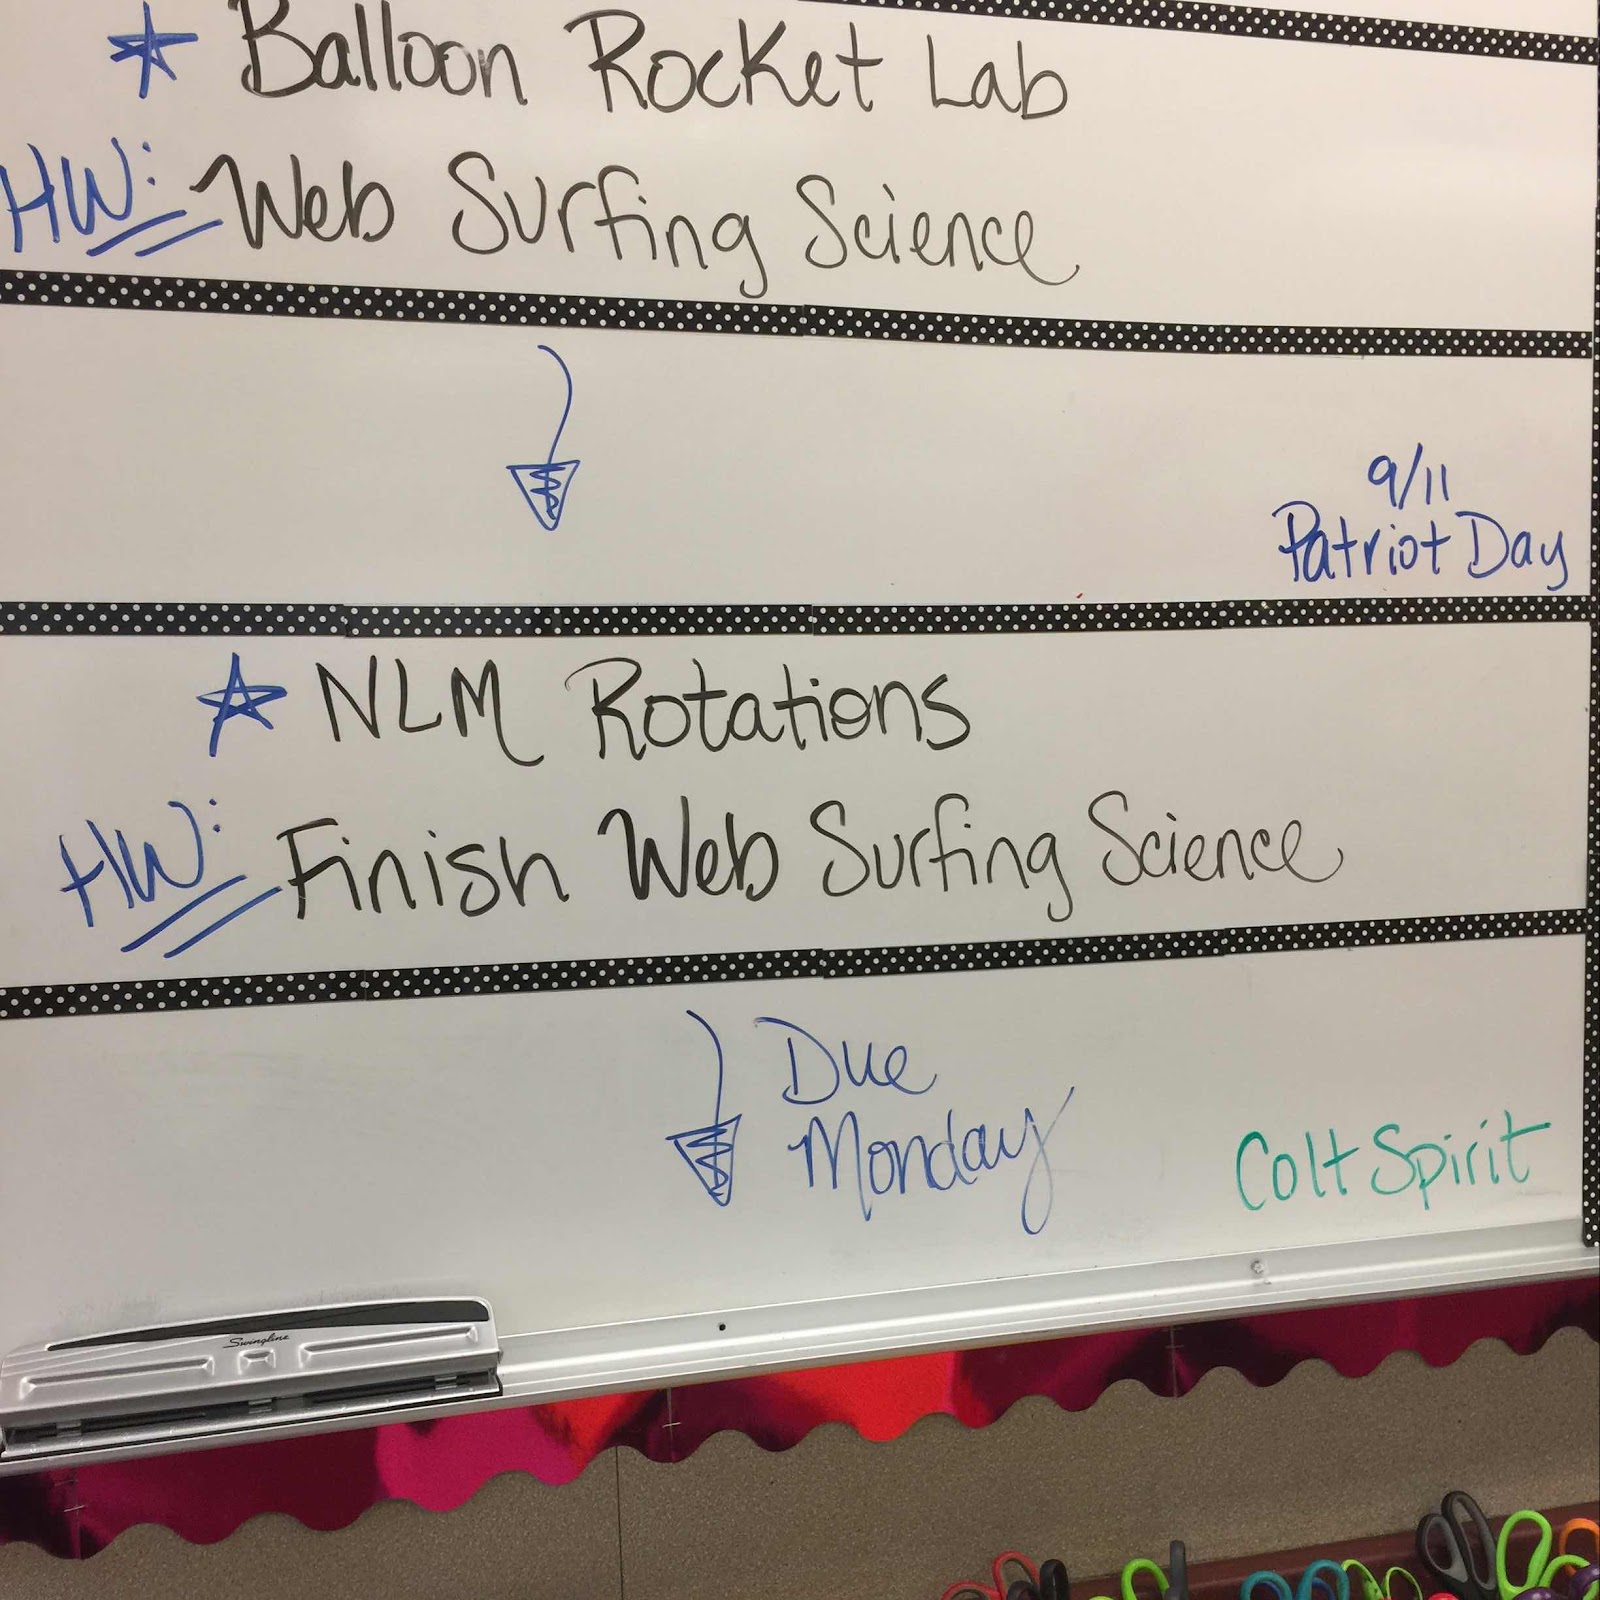 Balloon Rocket Lab
HW: Web Surfing Science
9/11
Patriot Day
NLM Rotations
HW: Finish Web Surfing Science
Due
Monday
Colt Spirit
Swingline